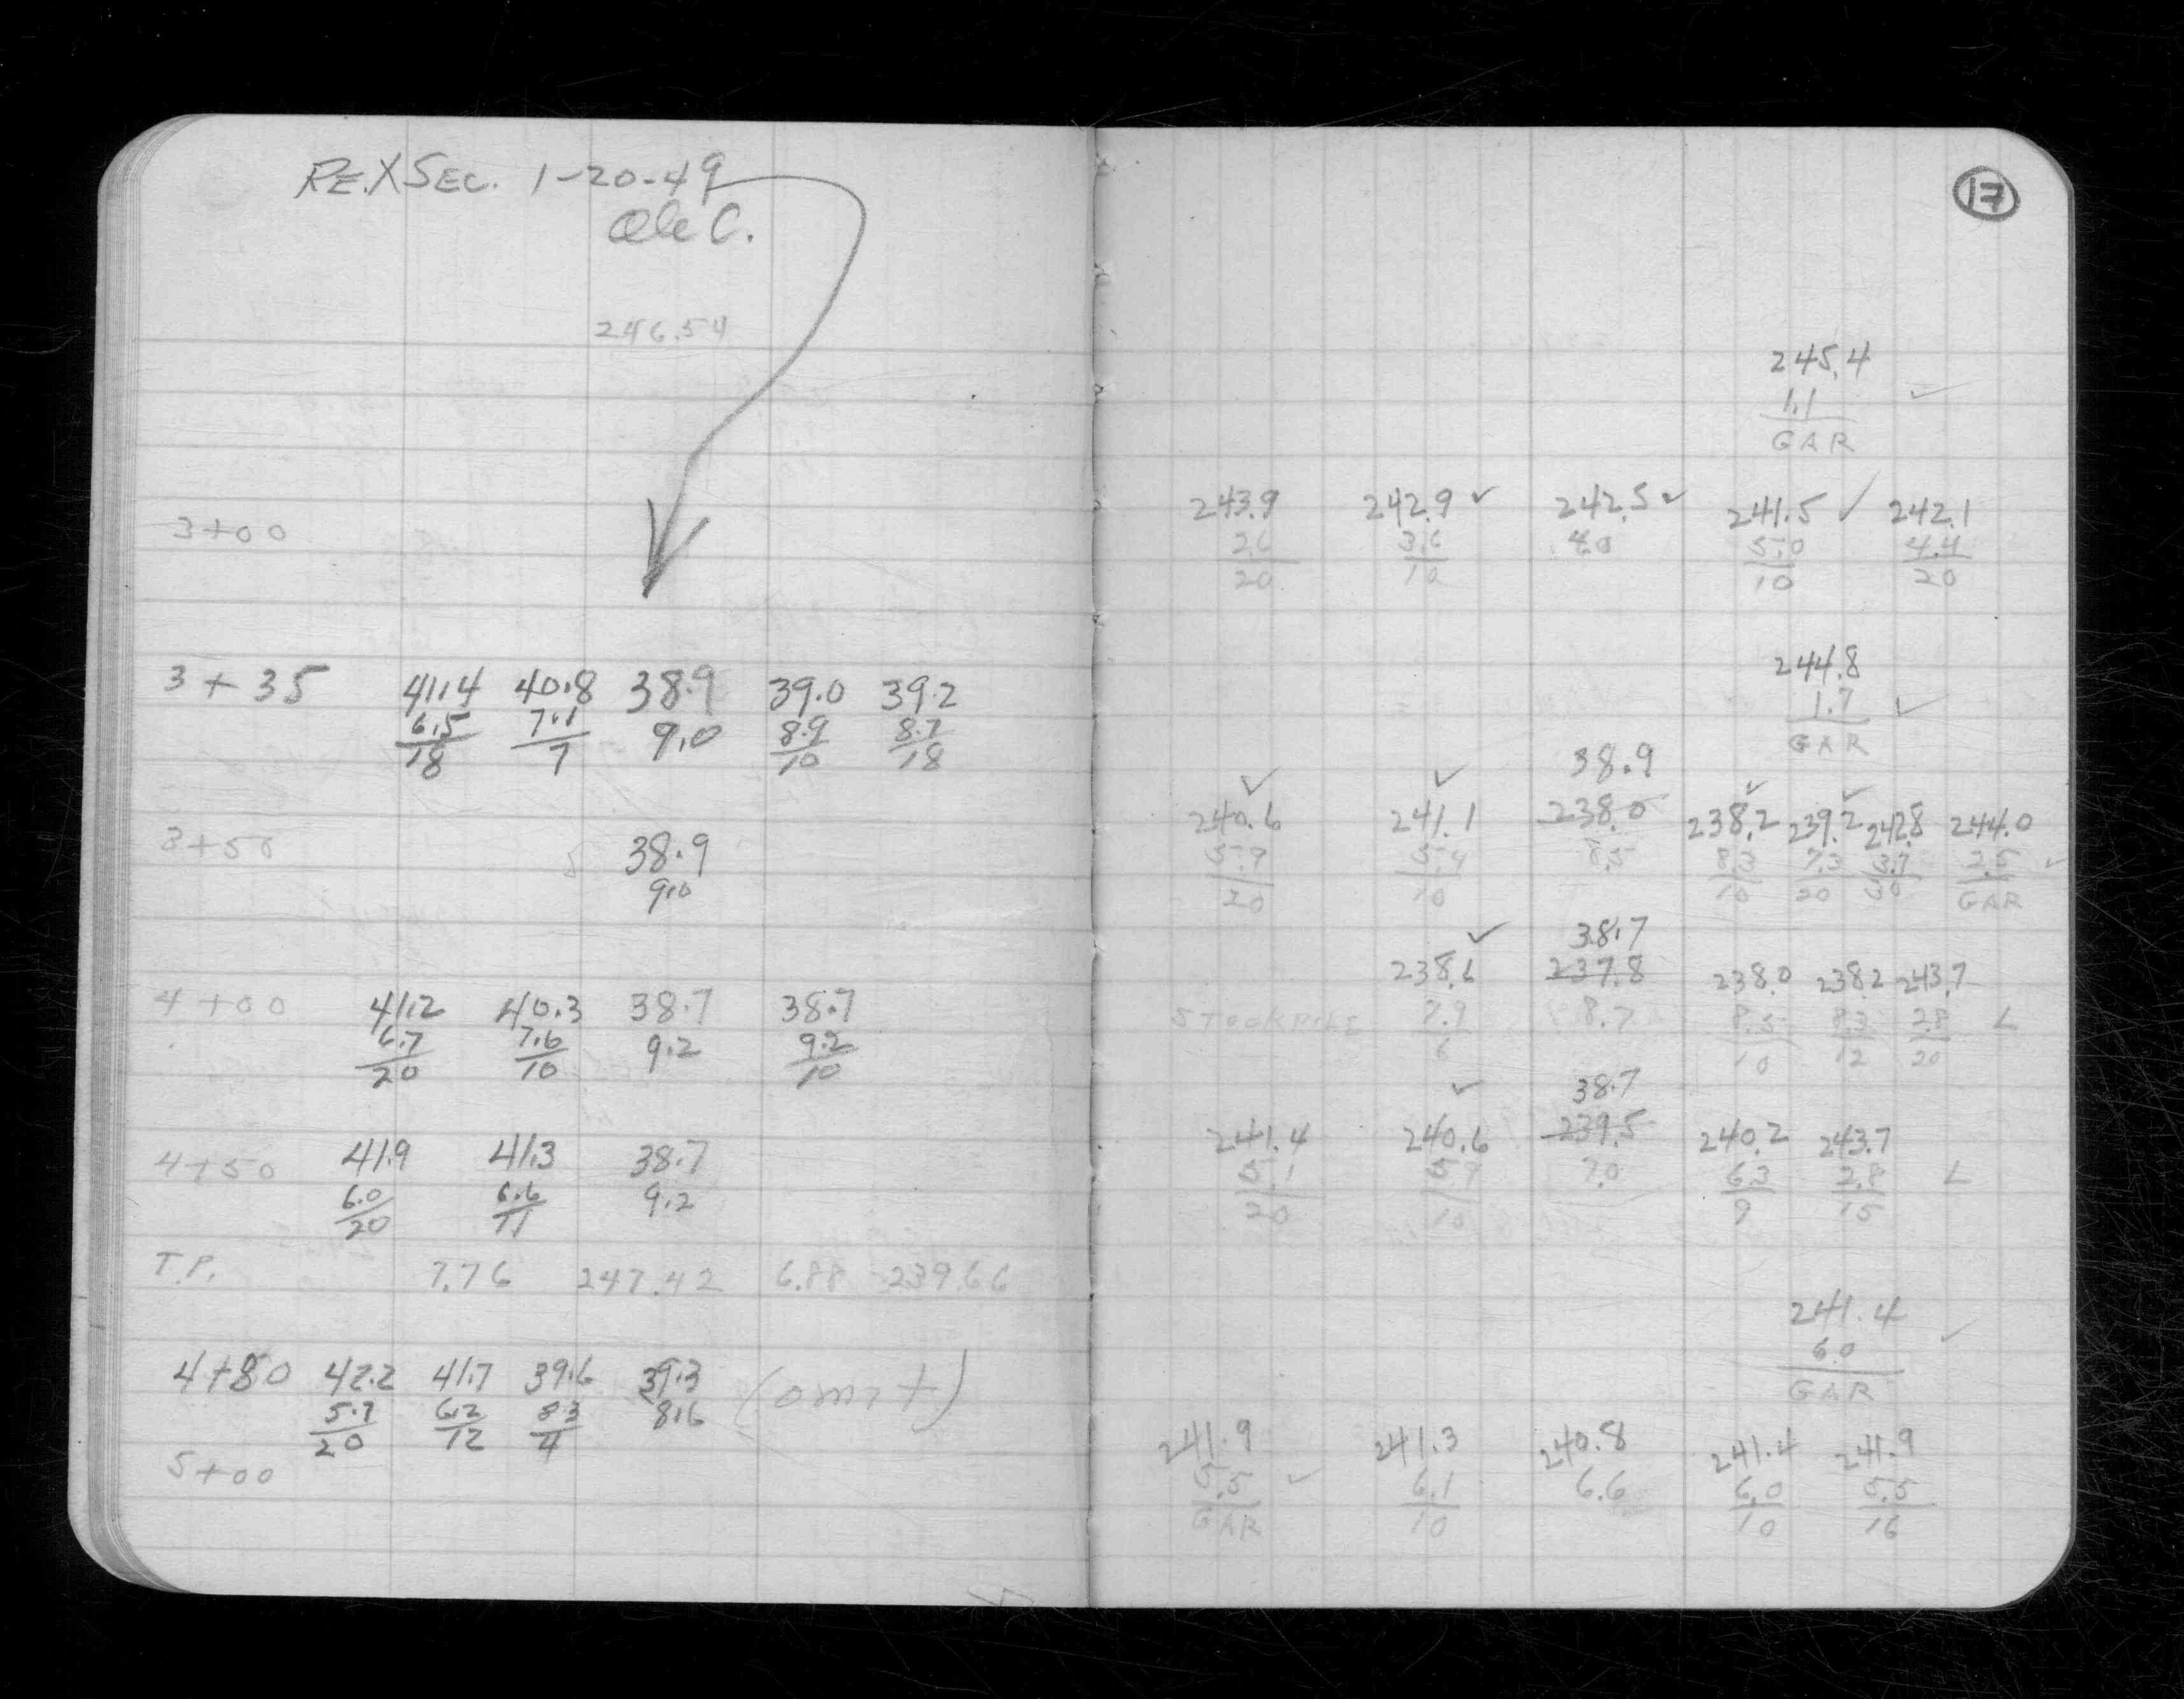 RE.XSEC. 1-20-49
Ole C.
246.54
3+00
3+35 41.4 40.8 38.9 39.0 39.2
6.5 7.1 9.0 8.9 8.7
18 7 10 18
3+50 38.9
9.0
4+00 41.2 40.3 38.7 38.7
6.7 7.6 9.2 9.2
20 10 10
4+50 41.9 41.3 38.7
6.0 6.6 9.2
20 11
T.P. 7.76 247.42 6.88 239.66
4+80 42.2 41.7 39.6 39.3 (omit)
5.7 6.2 8.3 8.6
20 12 4
5+00
17
245.4
1.1 ✓
GAR
243.9 242.9 ✓ 242.5 ✓ 241.5 ✓ 242.1
2.6 3.6 4.0 5.0 4.4
20 10 10 20
244.8
1.7 ✓
GAR
38.9
✓ ✓ ✓ ✓
240.6 241.1 238.0 238.2 239.2 242.8 244.0
5.9 5.4 8.5 8.3 7.3 3.7 2.5 ✓
20 10 10 20 30 GAR
✓ 38.7
238.6 237.8 238.0 238.2 243.7
STOCKPILE 7.9 8.7 8.5 8.3 2.8 L
6 10 12 20
✓ 38.7
241.4 240.6 239.5 240.2 243.7
5.1 5.9 7.0 6.3 2.8 L
20 10 9 15
241.4
6.0 ✓
GAR
241.9 241.3 240.8 241.4 241.9
5.5 ✓ 6.1 6.6 6.0 5.5
GAR 10 10 16